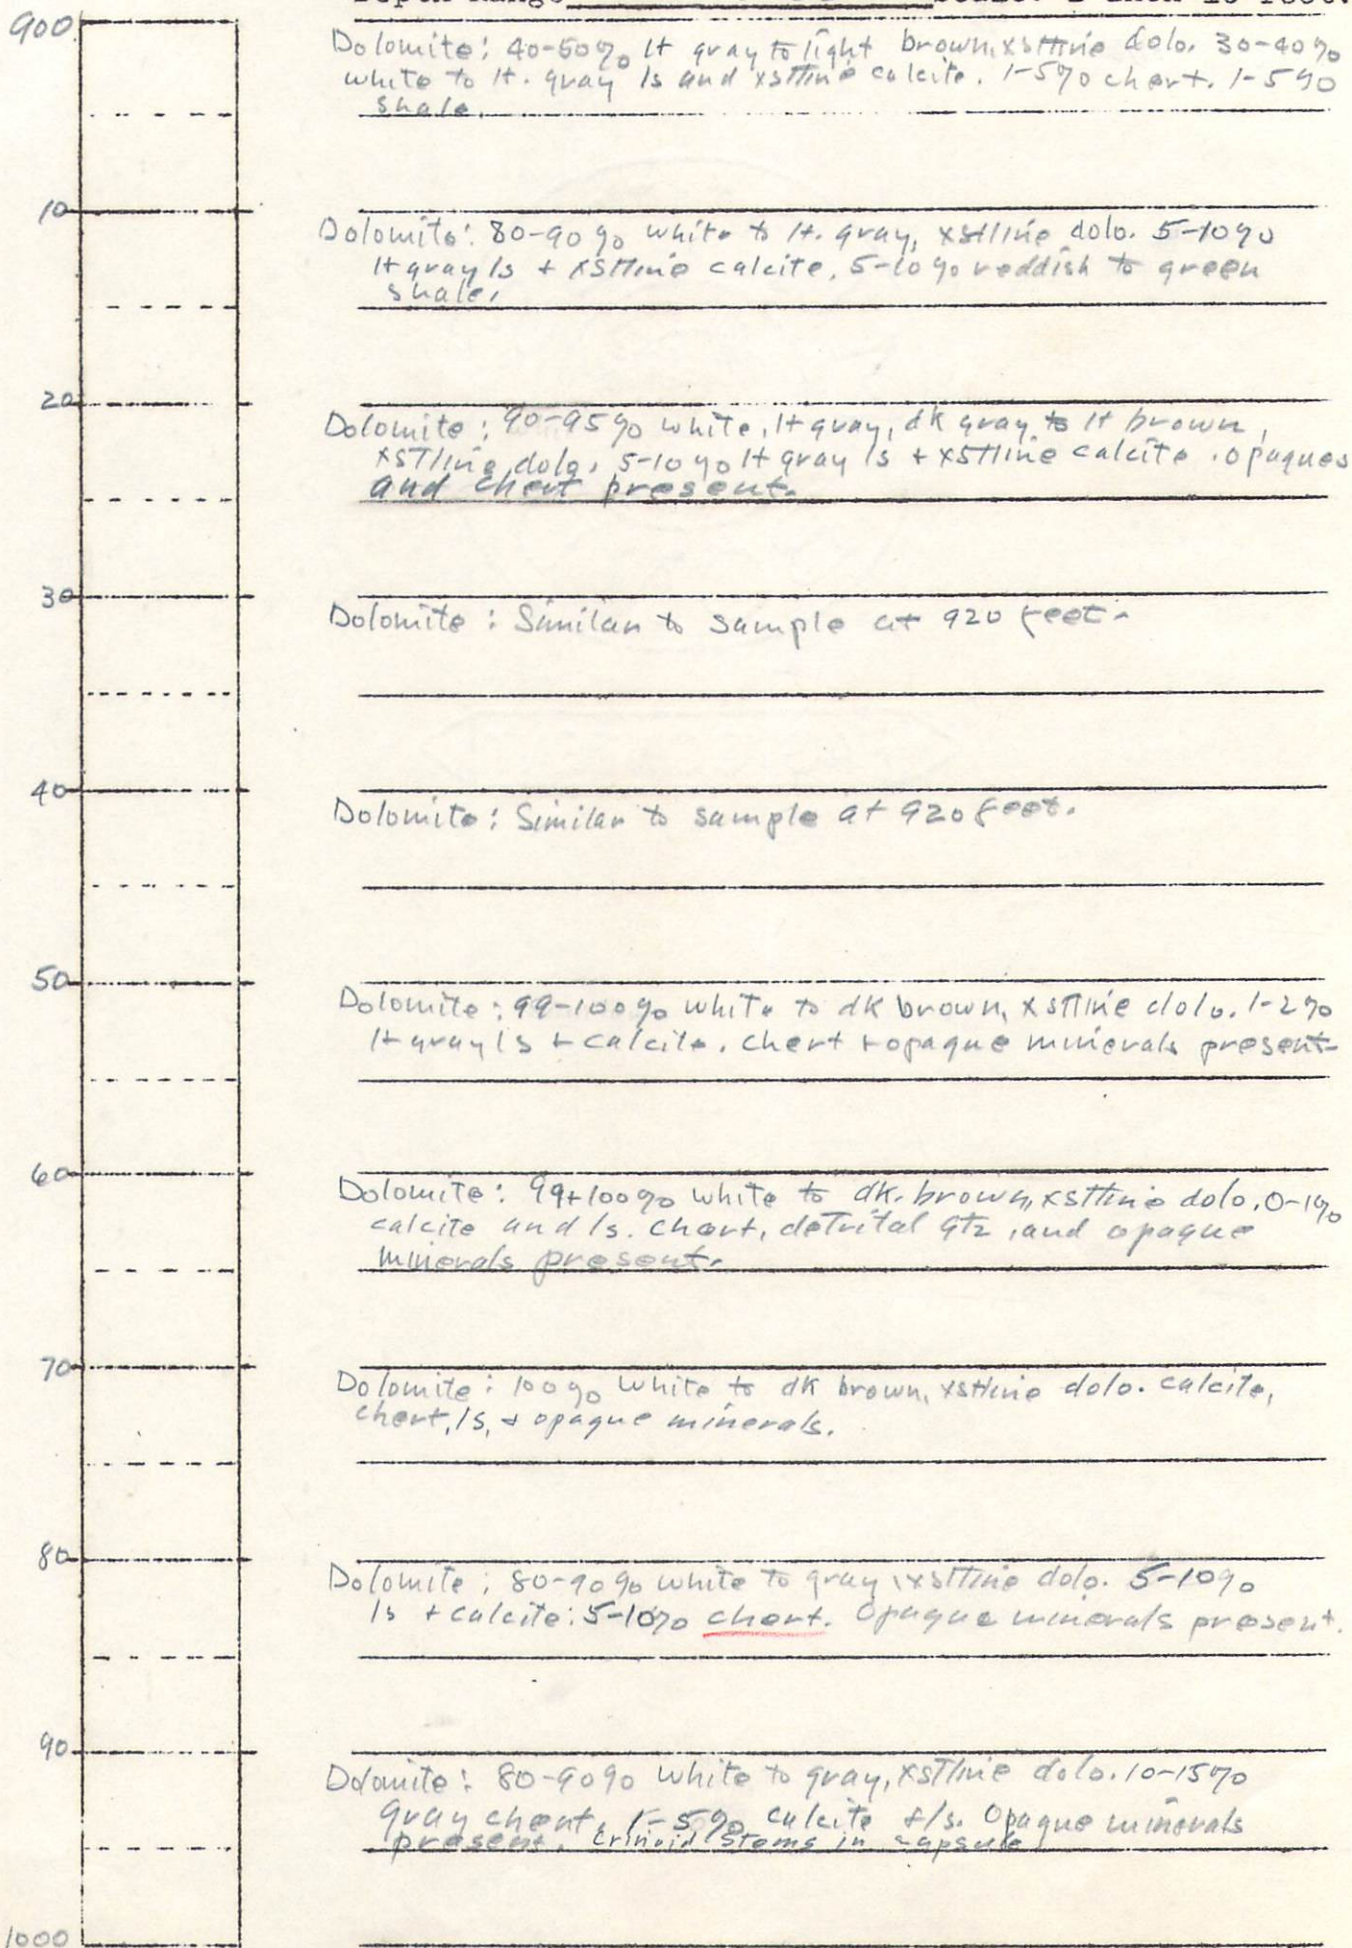 Depth Range Scale: 1 inch 10 feet.
900
Dolomite: 40-50% lt gray to light brown, xstlline dolo. 30-40%
white to lt. gray ls and xstlline calcite. 1-5% chert. 1-5%
shale.
10
Dolomite: 80-90% white to lt. gray, xstlline dolo. 5-10%
lt gray ls + xstlline calcite, 5-10% reddish to green
shale.
20
Dolomite: 90-95% white, lt gray, dk gray to lt brown,
xstlline dolo. 5-10% lt gray ls + xstlline calcite. opaques
and chert present.
30
Dolomite: Similar to sample at 920 feet.
40
Dolomite: Similar to sample at 920 feet.
50
Dolomite: 99-100% white to dk brown, xstlline dolo. 1-2%
lt gray ls + calcite. chert + opaque minerals present.
60
Dolomite: 99+100% white to dk. brown, xstlline dolo. 0-1%
calcite and ls. chert, detrital qtz, and opaque
minerals present.
70
Dolomite: 100% white to dk brown, xstlline dolo. calcite,
chert, ls, + opaque minerals.
80
Dolomite: 80-90% white to gray, xstlline dolo. 5-10%
ls + calcite: 5-10% chert. Opaque minerals present.
90
Dolomite: 80-90% white to gray, xstlline dolo. 10-15%
gray chert, 1-5% calcite + ls. Opaque minerals
present. Crinoid stems in capsule
1000